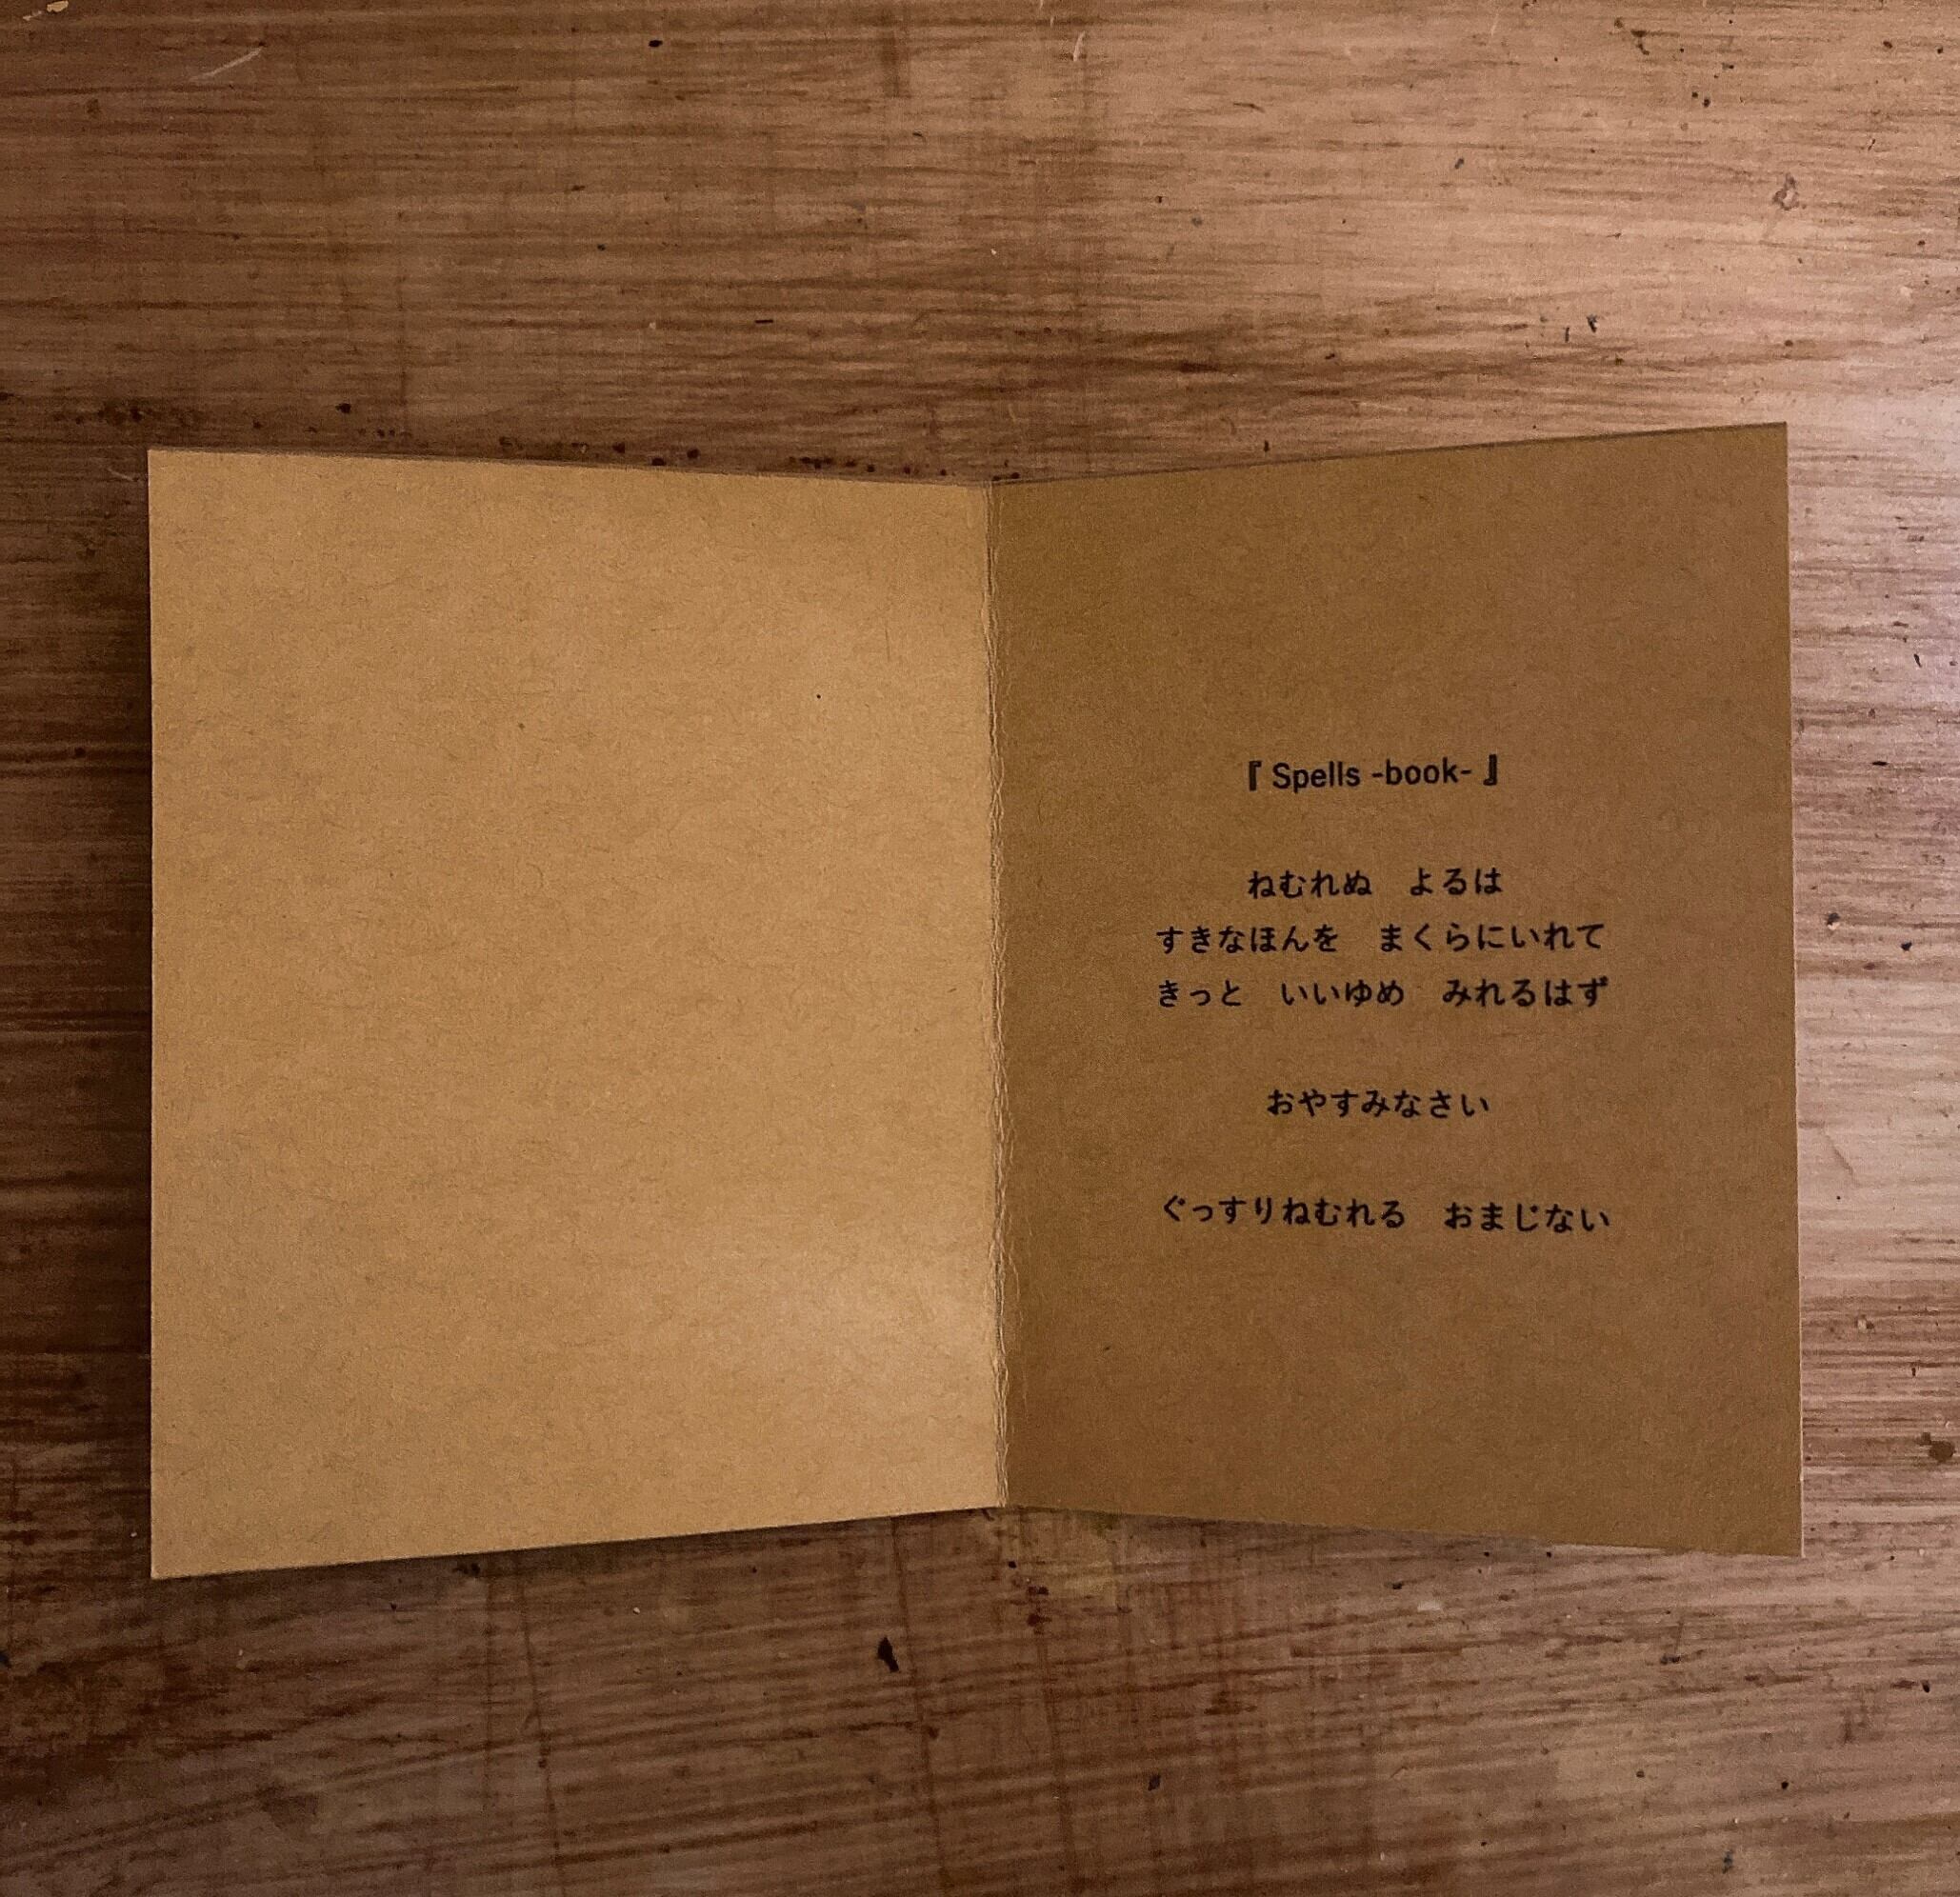 『 Spells -book- 』
ねむれぬ　よるは
すきなほんを　まくらにいれて
きっと　いいゆめ　みれるはず
おやすみなさい
ぐっすりねむれる　おまじない